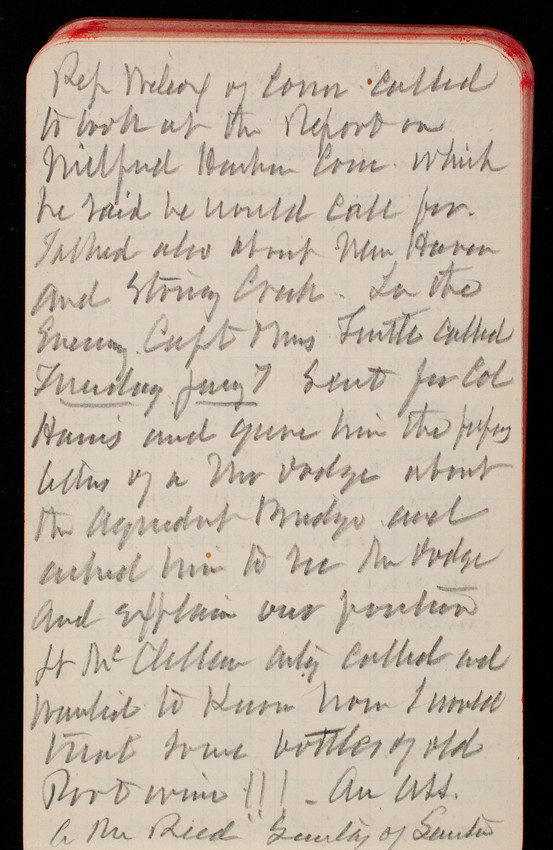 Rep Wilcox of Conn called
to look at the Report on
Milford Harbor Conn which
he said he would call for.
Talked also about New Haven
and Stony Creek. In the
Evening Capt & Mrs Turtle called
Tuesday Jany 7 Sent for Col
Hains and gave him the
letters of a Mr Dodge about
the Aqueduct Bridge and
asked him to see Mr Dodge
and explain our position
Lt McClellan arty called and
wanted to know how I would
treat some bottles of old
Port wine !!! - An Ass.
A Mr Reed "